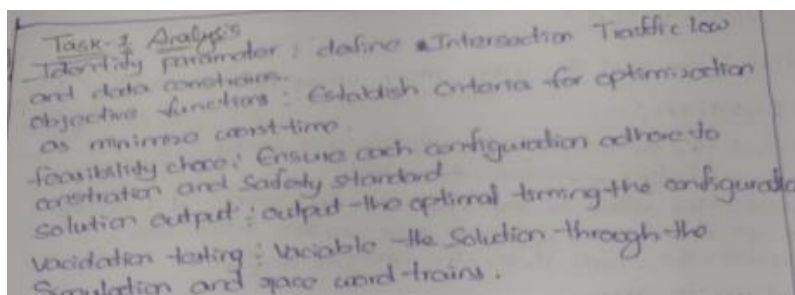 Task-1 Analysis
Identity parameter : define Intersection Traffic low
and data constraion.
objective functions : Establish criteria for optimization
as minimize worst-time.
feasibility chace : Ensure each configuration adhere to
constration and Safety standard
solution output : output the optimal timing the configuratio
vacidation testing : Vaciable the Solution through the
Simulation and space word-trains.